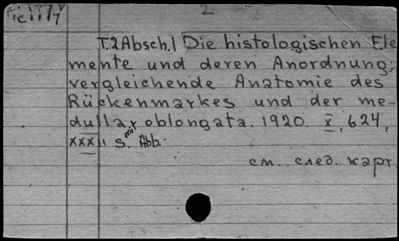 2
T.2 Absch.1 Die histologischen Ele
mente und deren Anordnung;
vergleichende Anatomie des
Rückenmarkes und der me-
dulla oblongata. 1920. X, 624,
XXXII S. mit Abb.
см. след. карт.